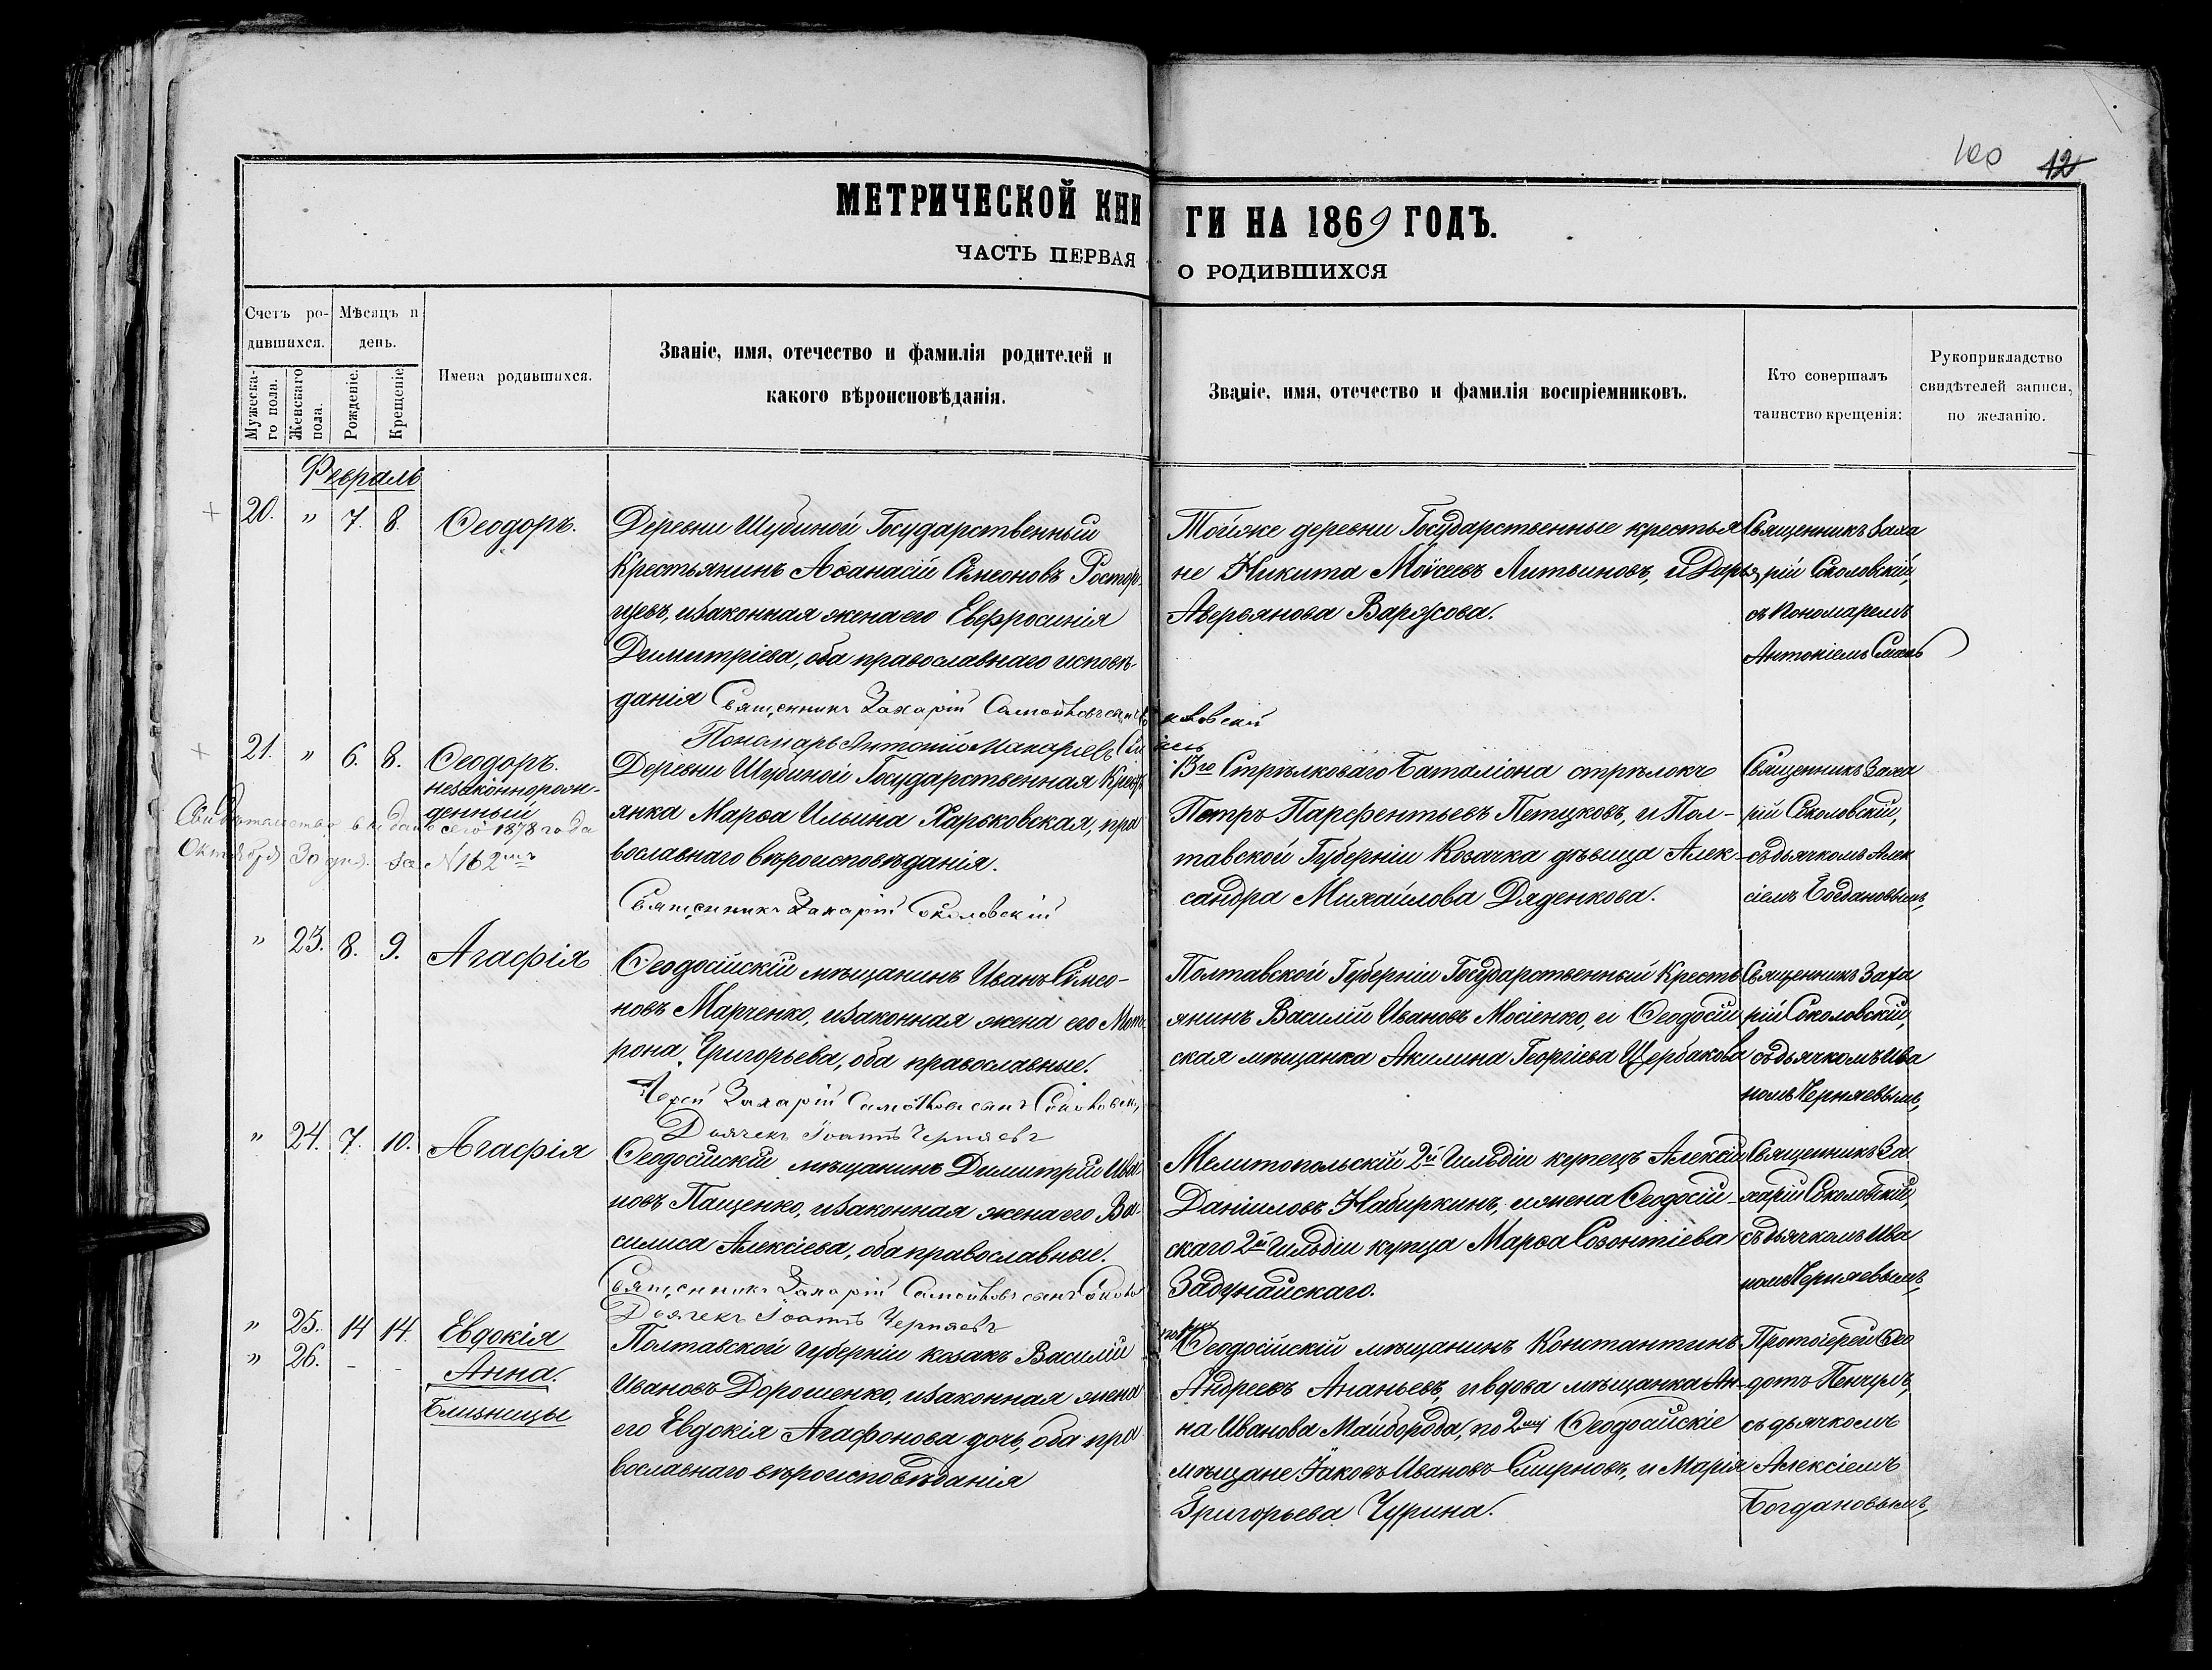 100 12
МЕТРИЧЕСКОЙ КНИ ГИ НА 1869 ГОДЪ.
ЧАСТЬ ПЕРВАЯ О РОДИВШИХСЯ
Счетъ ро-
дившихся.
Мѣсяцъ и
день.
Мужеска-
го пола.
Женскаго
пола.
Рожденіе.
Крещеніе.
Имена родившихся.
Званіе, имя, отечество и фамилія родителей и
какого вѣроисповѣданія.
Званіе, имя, отечество и фамилія воспріемниковъ.
Кто совершалъ
таинство крещенія:
Рукоприкладство
свидѣтелей записи,
по желанію.
Февраль
20. " 7. 8. Ѳеодоръ.
Деревни Шубиной Государственный
Крестьянинъ Аѳанасій Сѵмеоновъ Ростор-
цевъ, изаконная жена его Евфросинія
Димитріева, оба православнаго исповѣ-
данія Священникъ Захарій Самойловъ сынъ
Пономарь Антоній Макаріевъ
Тойже деревни Государственные крестья
не Никита Моѵсеевъ Литвиновъ, и Дарья
Аверьянова Варжова.
Священникъ Заха
рій Соколовскій,
съ Пономаремъ
Антоніемъ
21. " 6. 8. Ѳеодоръ.
незаконнорож-
денный
Свидѣтельство выдано сего 1878 года
Октября 30 дня за N 162мъ
Деревни Шубиной Государственная Крест
янка Марѳа Ильина Харьковская, пра
вославнаго вѣроисповѣданія.
Священникъ Захарій Соколовскій
13го Стрѣлковаго Баталіона стрѣлокъ
Петръ Парфентьевъ Петцковъ, и Пол-
тавской Губерніи Козачка дѣвица Алек-
сандра Михайлова Дяденкова.
Священникъ Заха
рій Соколовскій,
съдьячкомъ Алек
сіемъ Богдановымъ,
" 23. 8. 9. Агафія
Ѳеодосійскій мѣщанинъ Иванъ Сѵмео-
новъ Марченко, изаконная жена его Мат
рона Григорьева, оба православные.
Іерей Захарій Самойловъ сынъ Соколовск
Дьячекъ Іоаннъ Черняевъ
Полтавской Губерніи Государственный Кресть
янинъ Василій Ивановъ Мосіенко, и Ѳеодосій
ская мѣщанка Акилина Георгіева Щербакова
Священникъ Заха
рій Соколовскій,
съдьячкомъ Ива
номъ Черняевымъ,
" 24. 7. 10. Агафія
Ѳеодосійскій мѣщанинъ Димитрій Ива
новъ Пащенко, изаконная жена его Ва-
силиса Алексіева, оба православные.
Священникъ Захарій Самойловъ сынъ Соколов
Дьячекъ Іоаннъ Черняевъ
Мелитопольскій 2й Гильдіи купецъ Алексій
Даніиловъ Набиркинъ, ижена Ѳеодосій-
скаго 2й Гильдіи купца Марѳа Созонтіева
Задунайскаго.
Священникъ За
харій Соколовскій,
съдьячкомъ Ива
номъ Черняевымъ,
" 25. 14 14. Евдокія
" 26. - - Анна.
Близницы
Полтавской губерніи козакъ Василій
Ивановъ Дорошенко, изаконная жена
его Евдокія Агафонова дочь, оба пра
вославнаго вѣроисповѣданія
Ѳеодосійскій мѣщанинъ Константинъ
Андреевъ Ананьевъ, ивдова мѣщанка Ан-
на Иванова Майборода, по 2мъ Ѳеодосійскіе
мѣщане Іаковъ Ивановъ Смирновъ, и Марія
Григорьева Чурина.
Протоіерей Ѳео
дотъ Пенчулъ,
съ дьячкомъ
Алексіемъ
Богдановымъ,